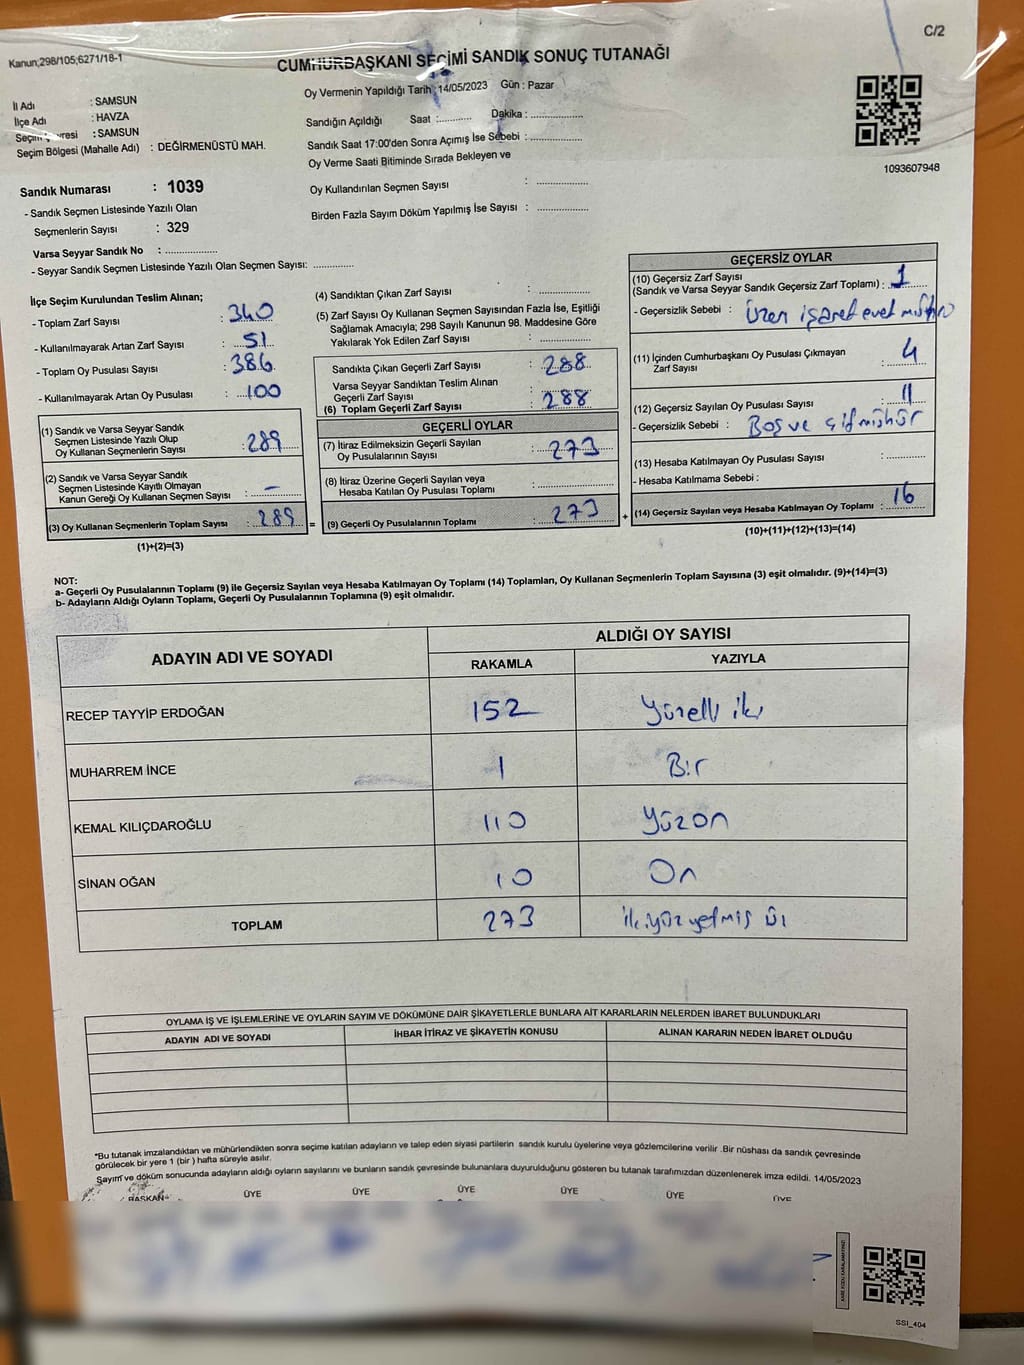 C/2
Kanun;298/105;6271/18-1
CUMHURBAŞKANI SEÇİMİ SANDIK SONUÇ TUTANAĞI
İl Adı : SAMSUN
İlçe Adı : HAVZA
Seçim Çevresi : SAMSUN
Seçim Bölgesi (Mahalle Adı) : DEĞİRMENÜSTÜ MAH.
Oy Vermenin Yapıldığı Tarih :14/05/2023 Gün : Pazar
Sandığın Açıldığı Saat :........... Dakika : ................
Sandık Saat 17:00'den Sonra Açımış İse Sebebi : ................
Oy Verme Saati Bitiminde Sırada Bekleyen ve
Oy Kullandırılan Seçmen Sayısı : ................
Birden Fazla Sayım Döküm Yapılmış İse Sayısı : ................
1093607948
Sandık Numarası : 1039
- Sandık Seçmen Listesinde Yazılı Olan
Seçmenlerin Sayısı : 329
Varsa Seyyar Sandık No : ................
- Seyyar Sandık Seçmen Listesinde Yazılı Olan Seçmen Sayısı: ............
İlçe Seçim Kurulundan Teslim Alınan;
- Toplam Zarf Sayısı : 340
- Kullanılmayarak Artan Zarf Sayısı : 51
- Toplam Oy Pusulası Sayısı : 386
- Kullanılmayarak Artan Oy Pusulası : 100
(1) Sandık ve Varsa Seyyar Sandık
Seçmen Listesinde Yazılı Olup
Oy Kullanan Seçmenlerin Sayısı : 289
(2) Sandık ve Varsa Seyyar Sandık
Seçmen Listesinde Kayıtlı Olmayan
Kanun Gereği Oy Kullanan Seçmen Sayısı : -
(3) Oy Kullanan Seçmenlerin Toplam Sayısı : 289 =
(1)+(2)=(3)
(4) Sandıktan Çıkan Zarf Sayısı : ................
(5) Zarf Sayısı Oy Kullanan Seçmen Sayısından Fazla İse, Eşitliği
Sağlamak Amacıyla; 298 Sayılı Kanunun 98. Maddesine Göre
Yakılarak Yok Edilen Zarf Sayısı : ................
Sandıkta Çıkan Geçerli Zarf Sayısı : 288
Varsa Seyyar Sandıktan Teslim Alınan
Geçerli Zarf Sayısı :
(6) Toplam Geçerli Zarf Sayısı 288
GEÇERLİ OYLAR
(7) İtiraz Edilmeksizin Geçerli Sayılan
Oy Pusulalarının Sayısı : 273
(8) İtiraz Üzerine Geçerli Sayılan veya
Hesaba Katılan Oy Pusulası Toplamı : ................
(9) Geçerli Oy Pusulalarının Toplamı : 273 +
GEÇERSİZ OYLAR
(10) Geçersiz Zarf Sayısı
(Sandık ve Varsa Seyyar Sandık Geçersiz Zarf Toplamı) : 1
- Geçersizlik Sebebi : Üzeri işaret
(11) İçinden Cumhurbaşkanı Oy Pusulası Çıkmayan
Zarf Sayısı : 4
(12) Geçersiz Sayılan Oy Pusulası Sayısı : 11
- Geçersizlik Sebebi : Boş ve çift mühür
(13) Hesaba Katılmayan Oy Pusulası Sayısı : ............
- Hesaba Katılmama Sebebi :
(14) Geçersiz Sayılan veya Hesaba Katılmayan Oy Toplamı : 16
(10)+(11)+(12)+(13)=(14)
NOT:
a- Geçerli Oy Pusulalarının Toplamı (9) ile Geçersiz Sayılan veya Hesaba Katılmayan Oy Toplamı (14) Toplamları, Oy Kullanan Seçmenlerin Toplam Sayısına (3) eşit olmalıdır. (9)+(14)=(3)
b- Adayların Aldığı Oyların Toplamı, Geçerli Oy Pusulalarının Toplamına (9) eşit olmalıdır.
ADAYIN ADI VE SOYADI ALDIĞI OY SAYISI
RAKAMLA YAZIYLA
RECEP TAYYİP ERDOĞAN 152 Yüzelli iki
MUHARREM İNCE 1 Bir
KEMAL KILIÇDAROĞLU 110 Yüzon
SİNAN OĞAN 10 On
TOPLAM 273 ikiyüzyetmiş üç
OYLAMA İŞ VE İŞLEMLERİNE VE OYLARIN SAYIM VE DÖKÜMÜNE DAİR ŞİKAYETLERLE BUNLARA AİT KARARLARIN NELERDEN İBARET BULUNDUKLARI
ADAYIN ADI VE SOYADI İHBAR İTİRAZ VE ŞİKAYETİN KONUSU ALINAN KARARIN NEDEN İBARET OLDUĞU
*Bu tutanak imzalandıktan ve mühürlendikten sonra seçime katılan adayların ve talep eden siyasi partilerin sandık kurulu üyelerine veya gözlemcilerine verilir .Bir nüshası da sandık çevresinde
görülecek bir yere 1 (bir ) hafta süreyle asılır.
Sayım ve döküm sonucunda adayların aldığı oyların sayılarını ve bunların sandık çevresinde bulunanlara duyurulduğunu gösteren bu tutanak tarafımızdan düzenlenerek imza edildi. 14/05/2023
BAŞKAN ÜYE ÜYE ÜYE ÜYE ÜYE ÜYE
SSI_404